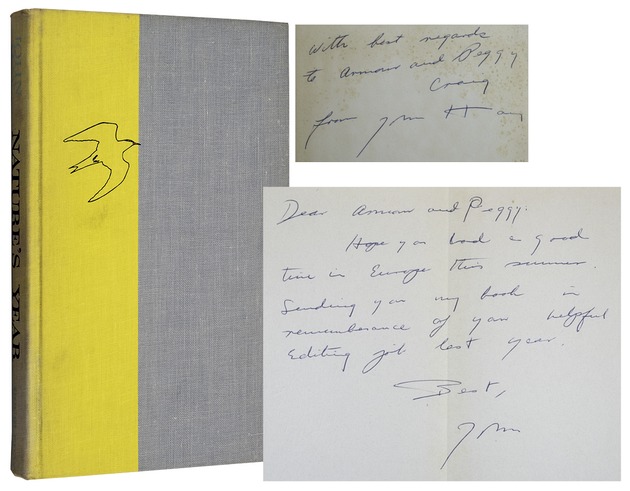 JOHN
NATURE'S YEAR
With best regards
to Armour and Peggy
Craig
from John Hay
Dear Armour and Peggy.
Hope you had a good
time in Europe this summer.
Sending you my book in
rememberance of your helpful
Editing job last year.
Best,
John